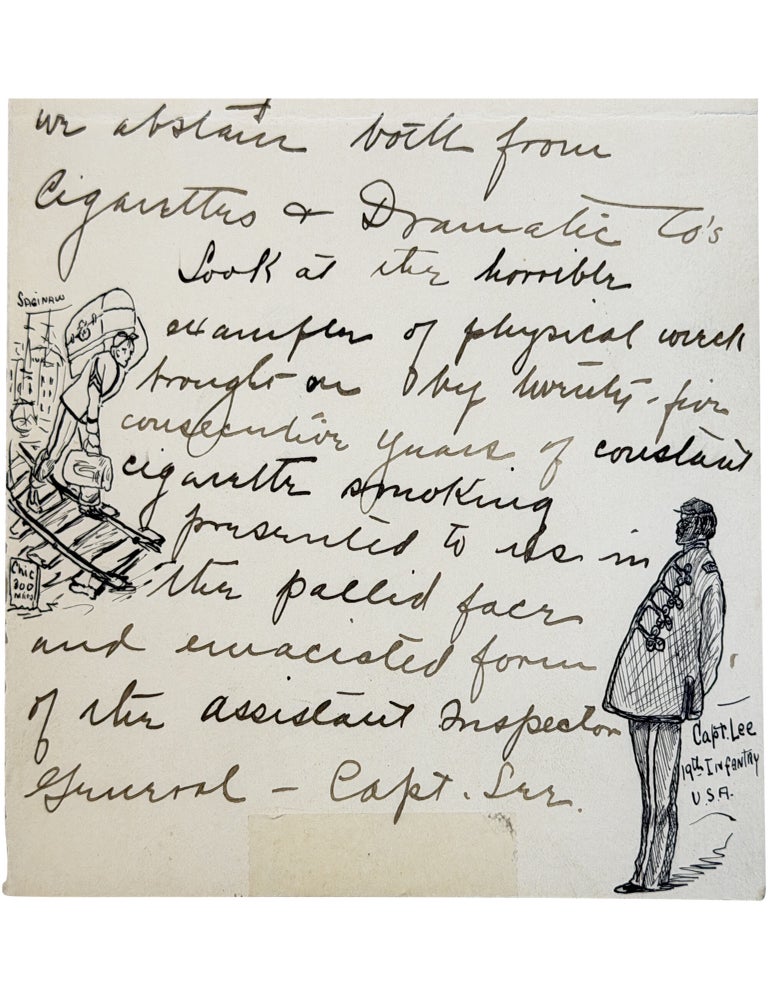 we abstain both from
Cigarettes & Dramatic Co's
Look at the horrible
SAGINAW
example of physical wreck
brought on by twenty-five
consecutive years of constant
cigarette smoking
presented to us in
the pallid face
Chic
300
MILES
and emaciated form
of the Assistant Inspector
General - Capt. Lee.
Capt. Lee
19th Infantry
U.S.A.